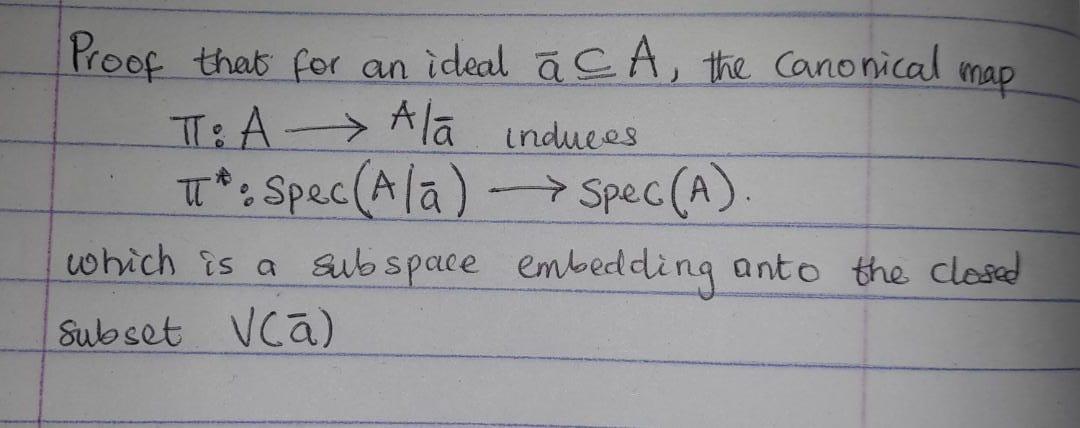 Proof that for an ideal ā ⊆ A, the canonical map
π: A → A/ā induces
π*: Spec(A/ā) → Spec(A).
which is a subspace embedding onto the closed
subset V(ā)